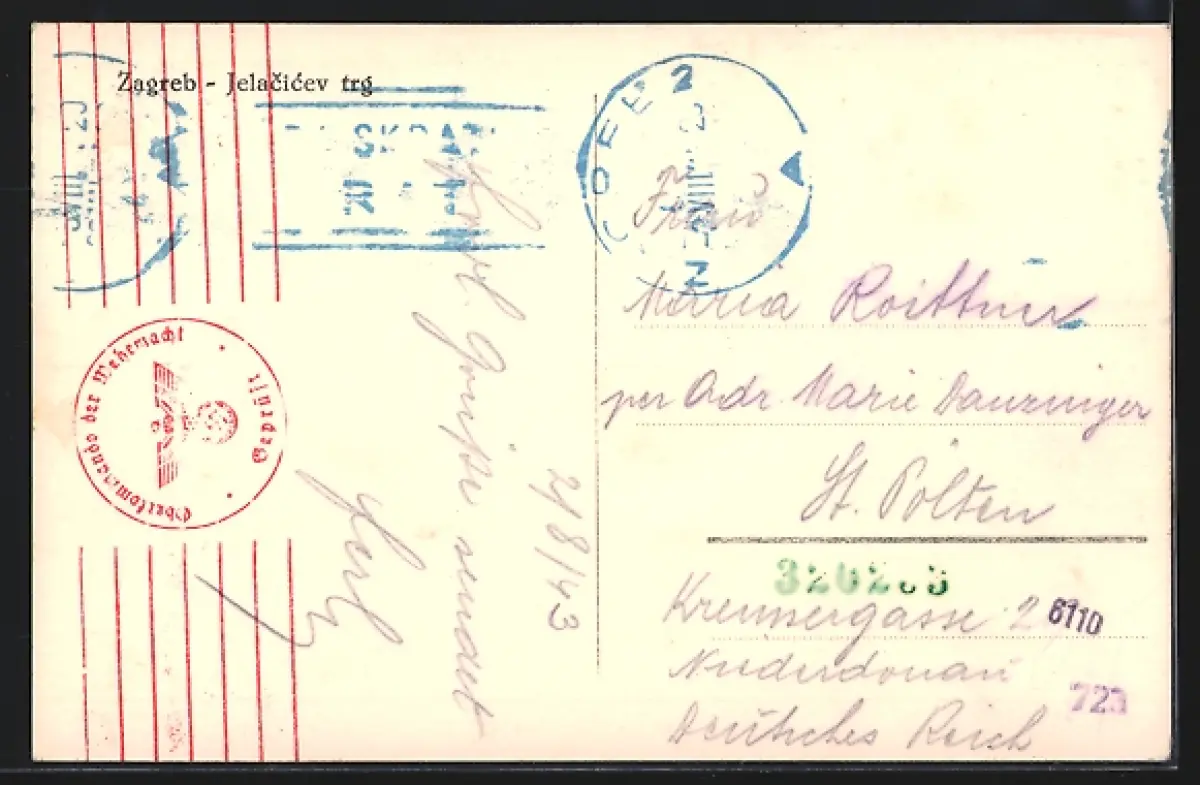 Zagreb - Jelačićev trg
Oberkommando der Wehrmacht
Geprüft
Grüße sendet
2/8/43
Frau
Maria Roittner
per Adr. Marie Danzinger
St. Pölten
320285
Kremsergasse 2
6110
Niederdonau
723
Deutsches Reich